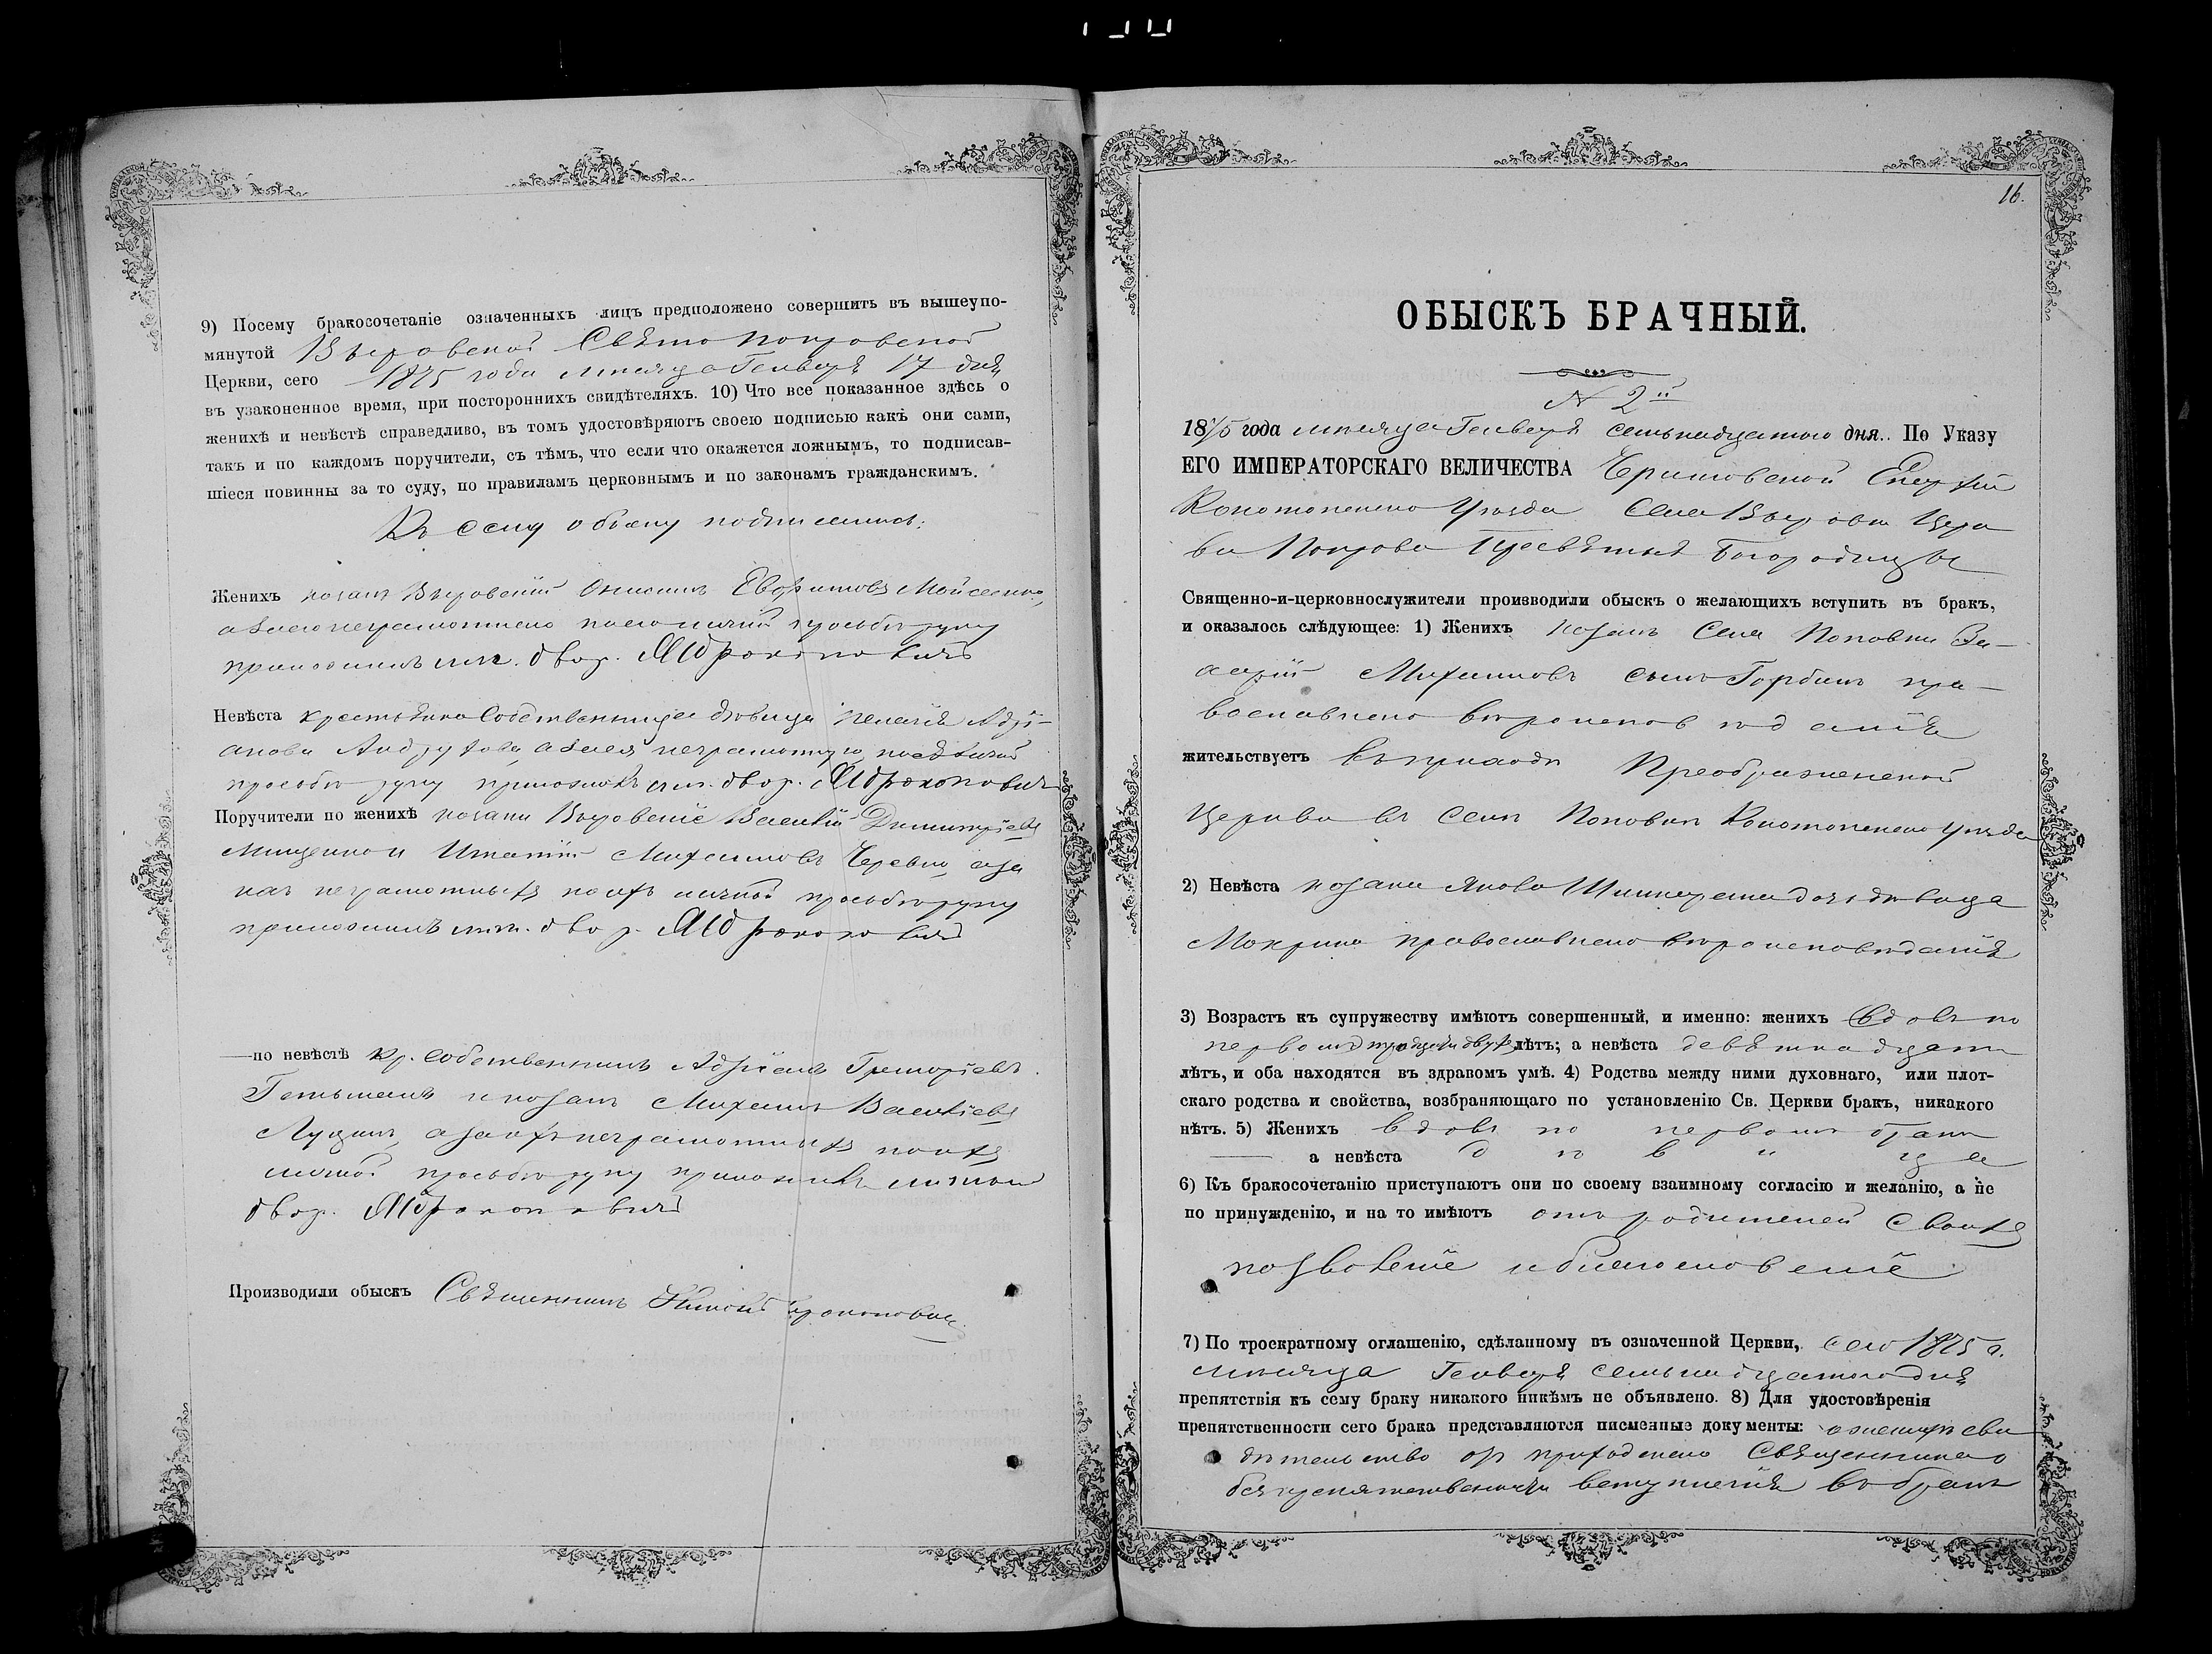 9) Посему бракосочетаніе означенныхъ лицъ предположено совершить въ вышеупо-
мянутой Вѣровской Свято Покровской
Церкви, сего 1875 года мѣсяца Генваря 17 дня
въ узаконенное время, при постороннихъ свидѣтеляхъ. 10) Что все показанное здѣсь о
женихѣ и невѣстѣ справедливо, въ томъ удостовѣряютъ своею подписью какъ они сами,
такъ и по каждомъ поручители, съ тѣмъ, что если что окажется ложнымъ, то подписав-
шіеся повинны за то суду, по правиламъ церковнымъ и по законамъ гражданскимъ.
Къ сему обыску подписались:
Женихъ козакъ Вѣровскій Онисимъ Моисеенко,
а за него неграмотнаго по его личной просьбѣ руку
приложилъ двор. Прокоповичъ
Невѣста крестьянка Собственница дѣвица Пелагія Адрі-
анова а за нея неграмотную по ея личной
просьбѣ руку приложилъ двор. Прокоповичъ
Поручители по женихѣ козаки Вѣровскіе Василій Димитріевъ
Мищенко и Игнатій Михаиловъ Черевко, а за
нихъ неграмотныхъ по ихъ личной просьбѣ руку
приложилъ двор. Прокоповичъ
—по невѣстѣ кр. собственникъ Адріанъ Григоріевъ
Гетьманъ и козакъ Михаилъ Василіевъ
Лущикъ, а за ихъ неграмотныхъ по ихъ
личной просьбѣ руку приложилъ личный
двор. Прокоповичъ
Производили обыскъ Священникъ Прокоповичъ
16.
ОБЫСКЪ БРАЧНЫЙ.
N 2й
1875 года мѣсяца Генваря семьнадцатого дня.. По Указу
ЕГО ИМПЕРАТОРСКАГО ВЕЛИЧЕСТВА Черниговской Епархіи
Конотопского Уѣзда Села Вѣровки Церк
ви Покрова Пресвятыя Богородицы
Священно-и-церковнослужители производили обыскъ о желающихъ вступить въ бракъ,
и оказалось слѣдующее: 1) Женихъ козакъ Села Поповки
Михаиловъ сынъ Горбикъ пра-
вославнаго вѣроисповѣданія
жительствуетъ въ приходѣ Преображенской
Церкви въ Селѣ Поповкѣ Конотопского уѣзда
2) Невѣста козака Якова дочь дѣвица
Мокрина православнаго вѣроисповѣданія
3) Возрастъ къ супружеству имѣютъ совершенный, и именно: женихъ вдовъ по
первомъ тридцати двухъ лѣтъ; а невѣста девятнадцати
лѣтъ, и оба находятся въ здравомъ умѣ. 4) Родства между ними духовнаго, или плот-
скаго родства и свойства, возбраняющаго по установленію Св. Церкви бракъ, никакого
нѣтъ. 5) Женихъ вдовъ по первомъ бракѣ
— а невѣста дѣвица
6) Къ бракосочетанію приступаютъ они по своему взаимному согласію и желанію, а не
по принужденію, и на то имѣютъ отъ родителей своихъ
позволеніе и благословеніе
7) По троекратному оглашенію, сдѣланному въ означенной Церкви, сего 1875 г.
мѣсяца Генваря семьнадцатого дня
препятствія къ сему браку никакого никѣмъ не объявлено. 8) Для удостовѣренія
препятственности сего брака представляются писменные документы: о женихѣ сви
дѣтельство отъ приходского Священника о
безпрепятственномъ вступленіи въ бракъ